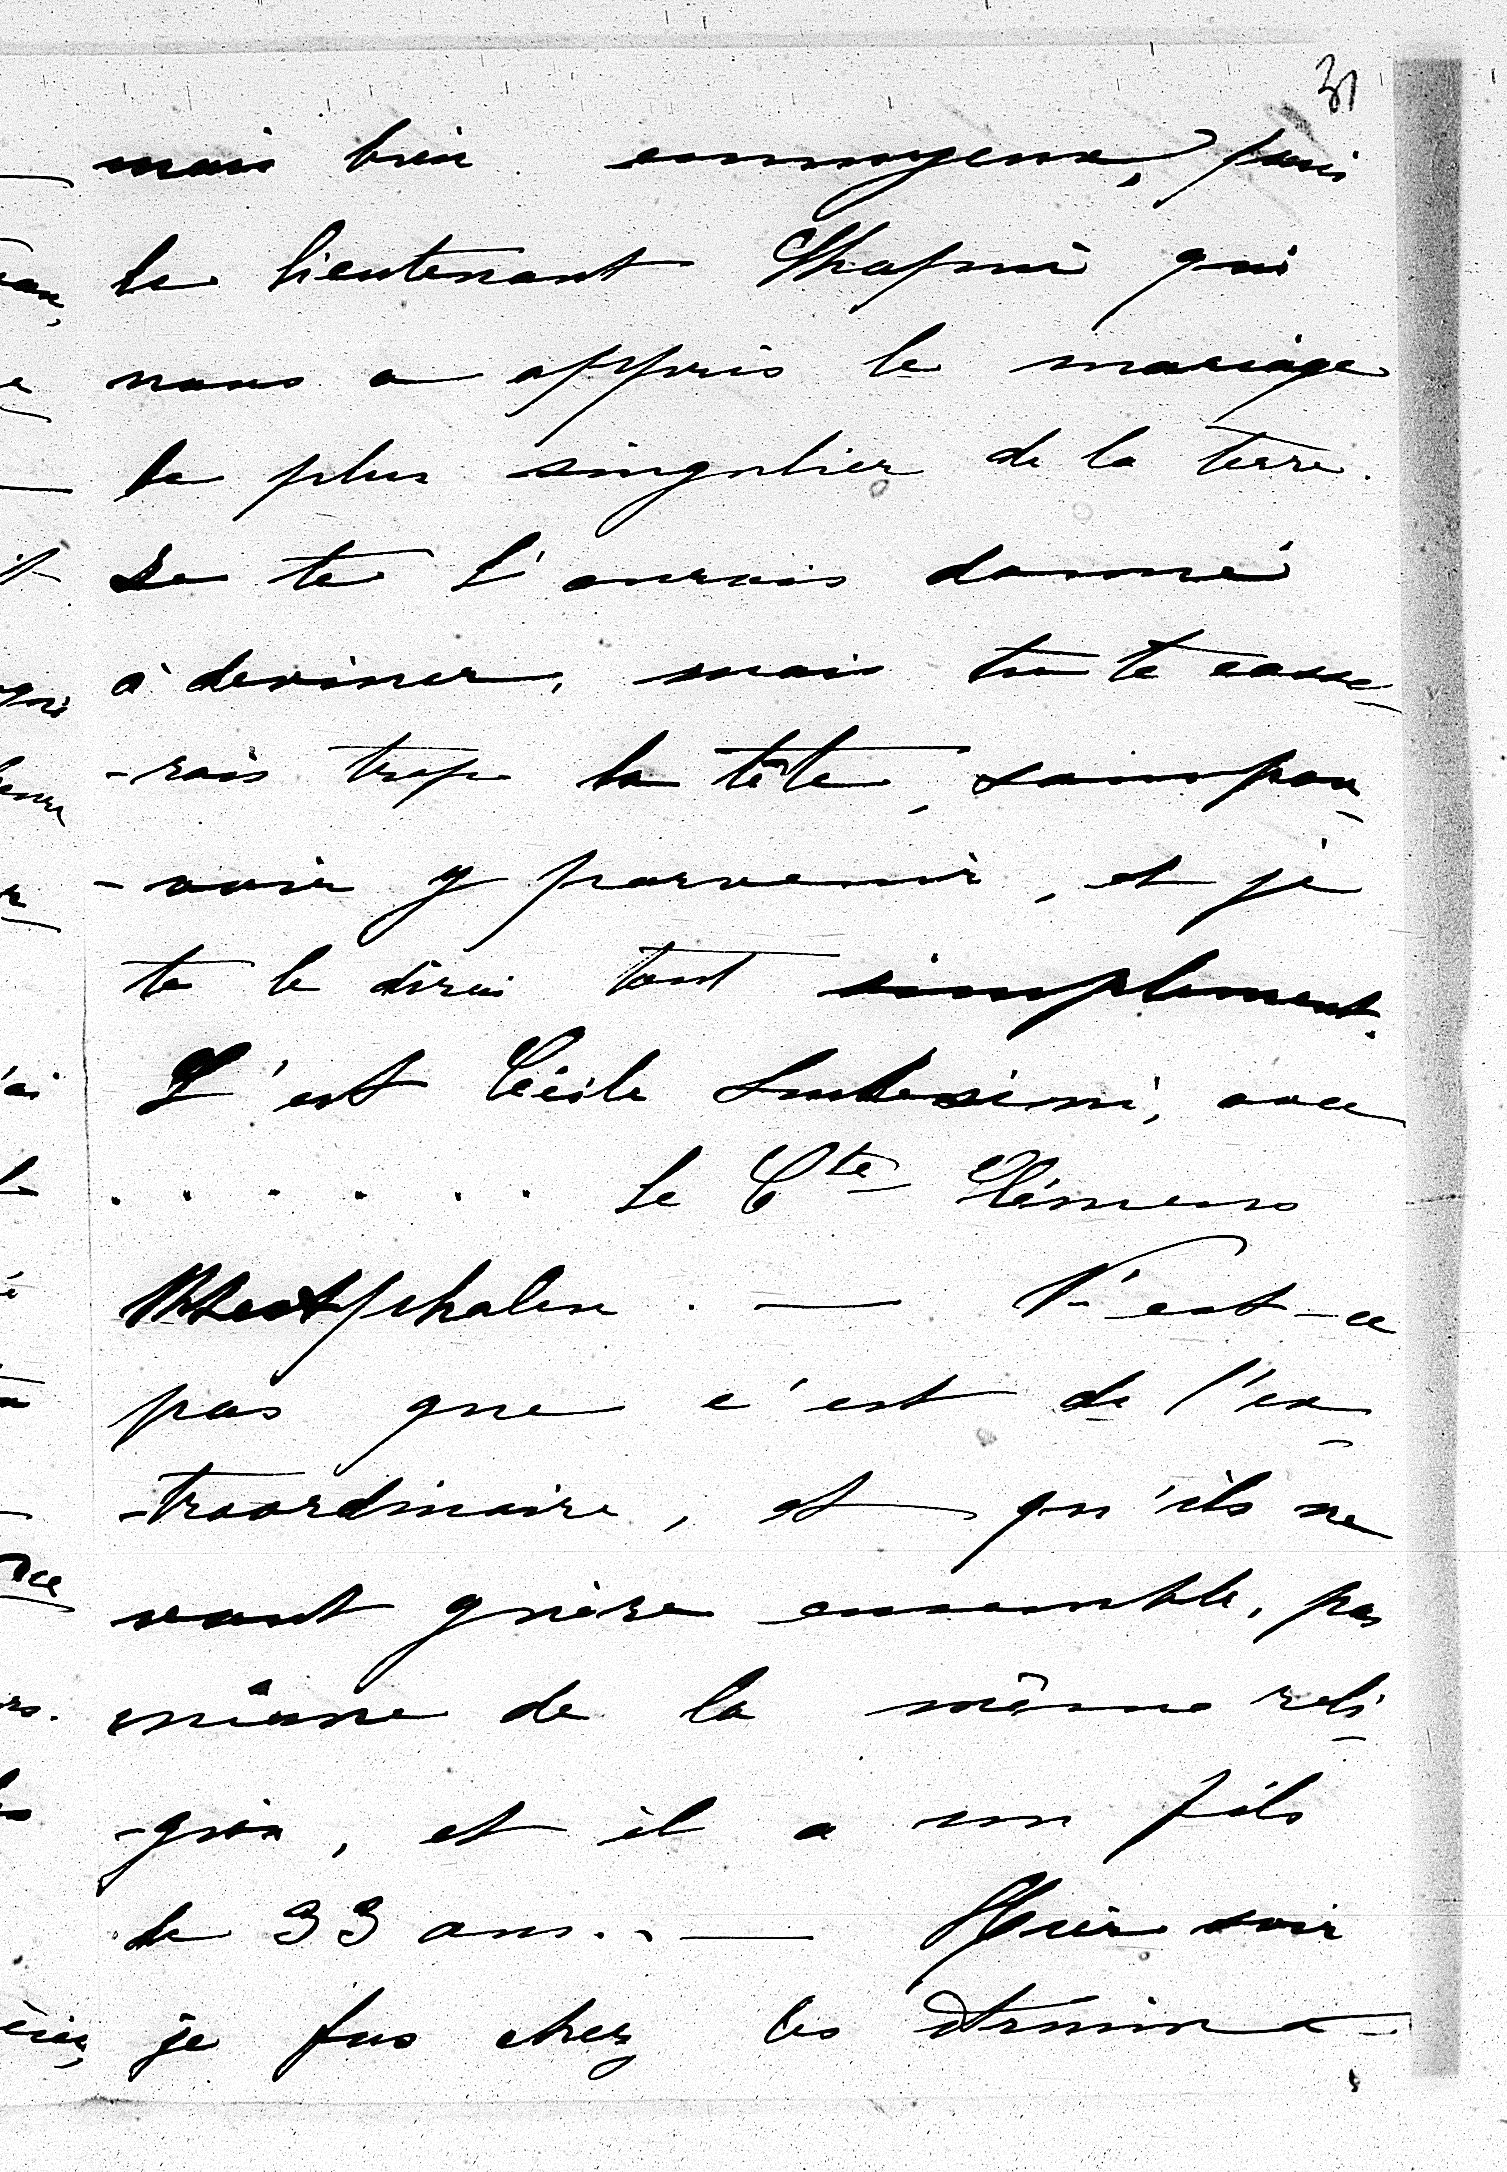 31
mais bien ennuyeux, puis
le lieutenant qui
nous a appris le mariage
le plus singulier de la terre.
Je te l'aurais donné
à deviner, mais tu te casse-
-rais trop la tête, sans pou-
-voir y parvenir, et je
te le dirai tout simplement.
C'est Cécile avec
. . . . . . le Cte Clémens
Westphalen. — N'est-ce
pas que c'est de l'ex-
-traordinaire, et qu'ils ne
vont guère ensemble, pas
même de la même reli-
-gion, et il a un fils
de 33 ans.. — Hier soir
je fus chez les